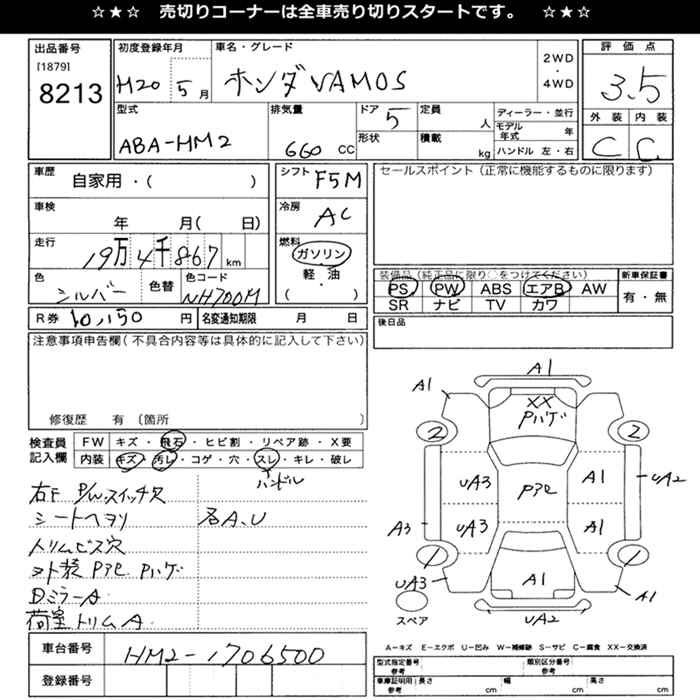 ☆★☆ 売切りコーナーは全車売り切りスタートです。 ☆★☆
出品番号
[1879]
8213
初度登録年月
H20 5月
車名・グレード
ホンダ VAMOS
2WD
・
4WD
評価点
3.5
外装 内装
C C
型式
ABA-HM2
排気量
660 CC
ドア 5
形状
定員 人
積載 kg
ディーラー・並行
モデル年式 年
ハンドル 左・右
車歴
自家用・( )
車検
年 月( 日)
走行
19万4千867km
色
シルバー
色替
色コード
NH700M
シフト F5M
冷房
AC
燃料
ガソリン
・
軽・油
( )
セールスポイント(正常に機能するものに限ります)
装備品(純正品に限り○をつけてください)
PS PW ABS エアB AW
SR ナビ TV カワ
新車保証書
有・無
R券 10,150円
名変通知期限 月 日
後日品
注意事項申告欄(不具合内容等は具体的に記入して下さい)
修復歴 有(箇所 )
検査員
記入欄
FW キズ・飛石・ヒビ割・リペア跡・X要
内装 キズ・汚レ・コゲ・穴・スレ・キレ・破レ
ハンドル
右F P/Wスイッチ欠
シートヘタリ
各A、U
トリムビス穴
ヨト装 Pアセ Pハゲ
Dミラー A
荷室トリム A
車台番号
HM2-1706500
登録番号
A1
A1
XX
Pハゲ
2
2
UA3
Pアセ
A1
UA2
A3
UA3
A1
1
1
UA3
A1
A1
UA2
スペア
A-キズ E-エクボ U-凹み W-補修跡 S-サビ C-腐食 XX-交換済
型式指定番号
参考
類別区分番号
参考
車庫証明用
参考
長さ cm
幅 cm
高さ cm